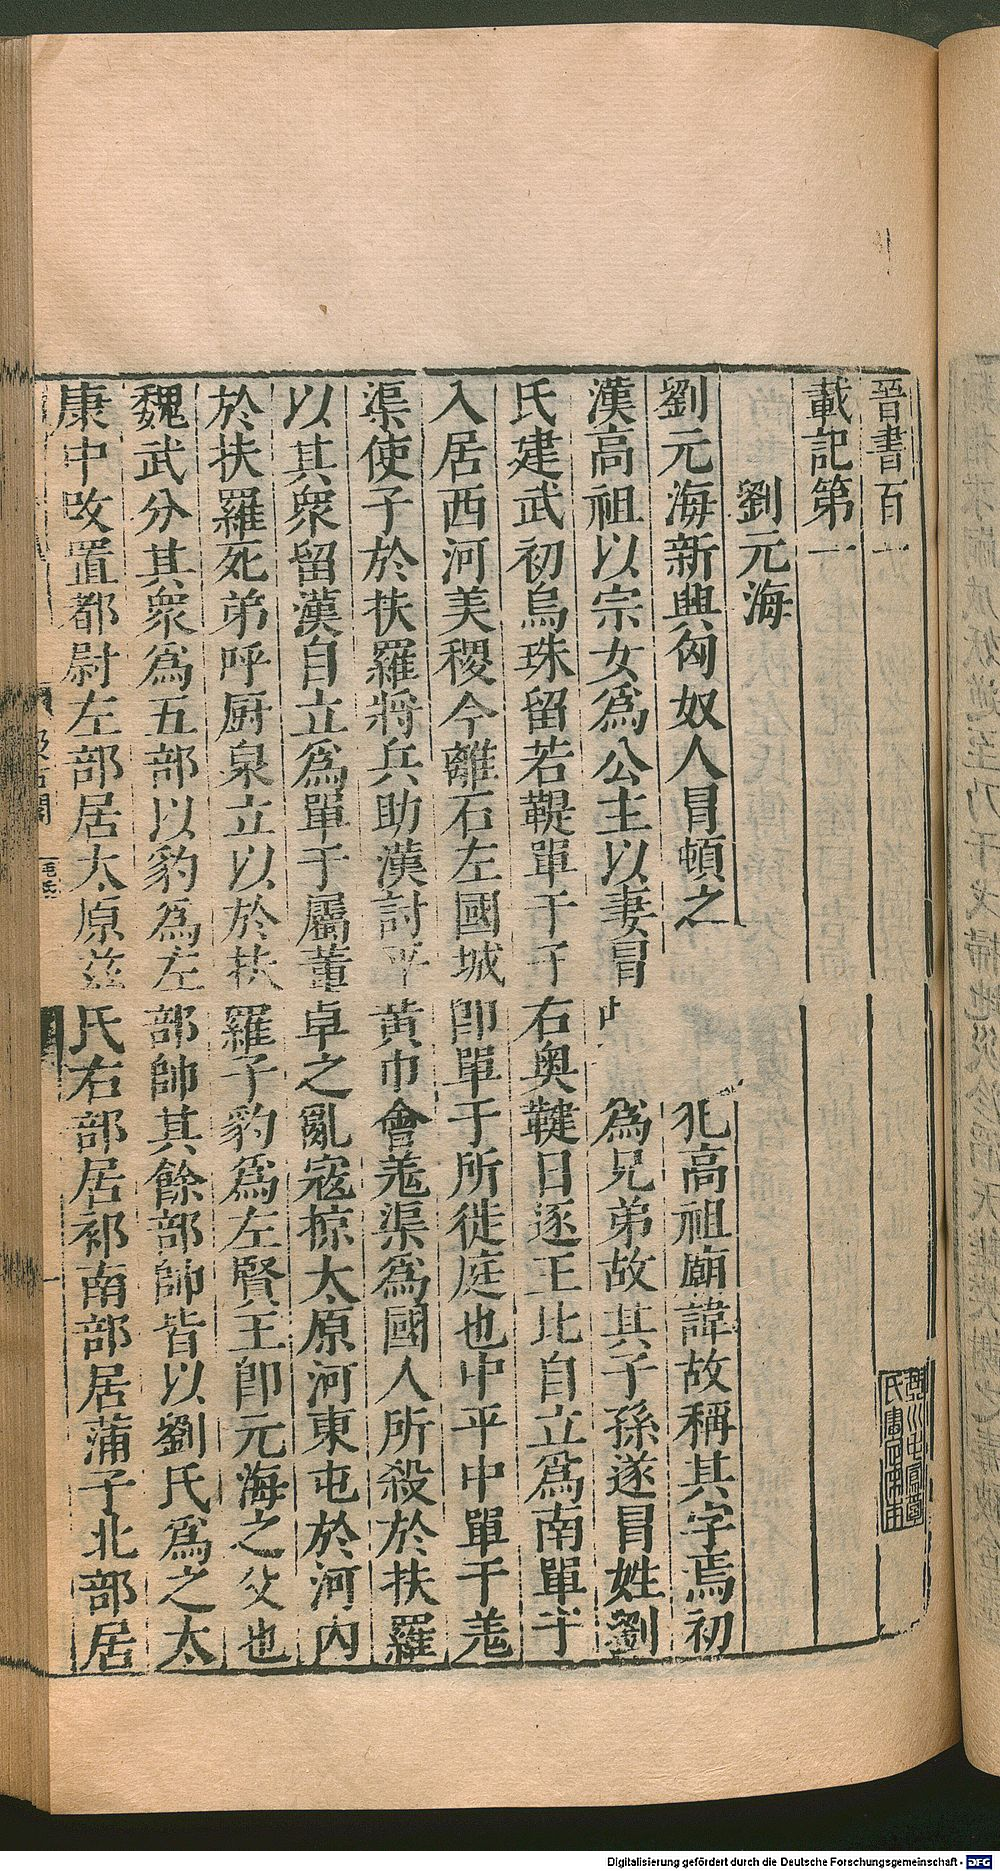 晉書百一
載記第一
劉元海
劉元海新興匈奴人冒頓之 犯高祖廟諱故稱其字焉初
漢高祖以宗女爲公主以妻冒 爲兄弟故其子孫遂冒姓劉
氏建武初烏珠留若鞮單于子右奥鞬日逐王比自立爲南單于
入居西河美稷今離石左國城卽單于所徙庭也中平中單于羗
渠使子於扶羅將兵助漢討平黃巾會羗渠爲國人所殺於扶羅
以其衆留漢自立爲單于屬董卓之亂寇掠太原河東屯於河内
於扶羅死弟呼厨泉立以於扶羅子豹爲左賢王卽元海之父也
魏武分其衆爲五部以豹爲左部帥其餘部帥皆以劉氏爲之太
康中改置都尉左部居太原兹氏右部居祁南部居蒲子北部居
Digitalisierung gefördert durch die Deutsche Forschungsgemeinschaft - DFG